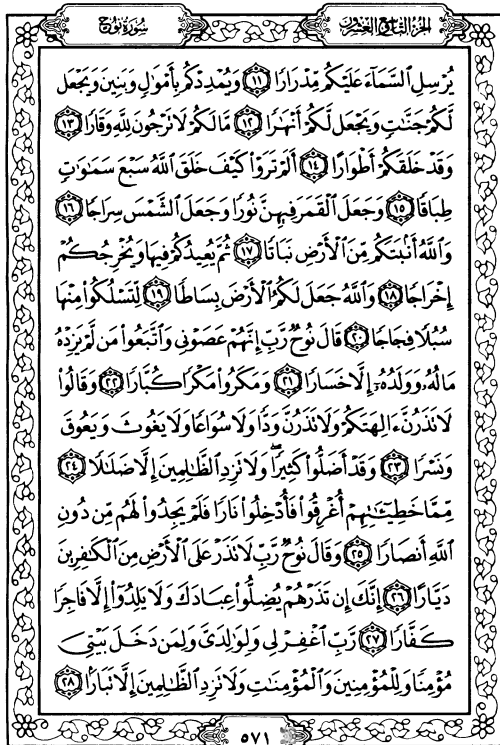 الجزء التاسع والعشرون
سورة نوح
يُرْسِلِ ٱلسَّمَآءَ عَلَيْكُم مِّدْرَارًا ١١ وَيُمْدِدْكُم بِأَمْوَٰلٍ وَبَنِينَ وَيَجْعَل
لَّكُمْ جَنَّٰتٍ وَيَجْعَل لَّكُمْ أَنْهَٰرًا ١٢ مَّا لَكُمْ لَا تَرْجُونَ لِلَّهِ وَقَارًا ١٣
وَقَدْ خَلَقَكُمْ أَطْوَارًا ١٤ أَلَمْ تَرَوْا۟ كَيْفَ خَلَقَ ٱللَّهُ سَبْعَ سَمَٰوَٰتٍ
طِبَاقًا ١٥ وَجَعَلَ ٱلْقَمَرَ فِيهِنَّ نُورًا وَجَعَلَ ٱلشَّمْسَ سِرَاجًا ١٦
وَٱللَّهُ أَنۢبَتَكُم مِّنَ ٱلْأَرْضِ نَبَاتًا ١٧ ثُمَّ يُعِيدُكُمْ فِيهَا وَيُخْرِجُكُمْ
إِخْرَاجًا ١٨ وَٱللَّهُ جَعَلَ لَكُمُ ٱلْأَرْضَ بِسَاطًا ١٩ لِّتَسْلُكُوا۟ مِنْهَا
سُبُلًا فِجَاجًا ٢٠ قَالَ نُوحٌ رَّبِّ إِنَّهُمْ عَصَوْنِى وَٱتَّبَعُوا۟ مَن لَّمْ يَزِدْهُ
مَالُهُۥ وَوَلَدُهُۥٓ إِلَّا خَسَارًا ٢١ وَمَكَرُوا۟ مَكْرًا كُبَّارًا ٢٢ وَقَالُوا۟
لَا تَذَرُنَّ ءَالِهَتَكُمْ وَلَا تَذَرُنَّ وَدًّا وَلَا سُوَاعًا وَلَا يَغُوثَ وَيَعُوقَ
وَنَسْرًا ٢٣ وَقَدْ أَضَلُّوا۟ كَثِيرًا ۖ وَلَا تَزِدِ ٱلظَّٰلِمِينَ إِلَّا ضَلَٰلًا ٢٤
مِّمَّا خَطِيٓـَٰٔتِهِمْ أُغْرِقُوا۟ فَأُدْخِلُوا۟ نَارًا فَلَمْ يَجِدُوا۟ لَهُم مِّن دُونِ
ٱللَّهِ أَنصَارًا ٢٥ وَقَالَ نُوحٌ رَّبِّ لَا تَذَرْ عَلَى ٱلْأَرْضِ مِنَ ٱلْكَٰفِرِينَ
دَيَّارًا ٢٦ إِنَّكَ إِن تَذَرْهُمْ يُضِلُّوا۟ عِبَادَكَ وَلَا يَلِدُوٓا۟ إِلَّا فَاجِرًا
كَفَّارًا ٢٧ رَّبِّ ٱغْفِرْ لِى وَلِوَٰلِدَىَّ وَلِمَن دَخَلَ بَيْتِىَ
مُؤْمِنًا وَلِلْمُؤْمِنِينَ وَٱلْمُؤْمِنَٰتِ وَلَا تَزِدِ ٱلظَّٰلِمِينَ إِلَّا تَبَارًۢا ٢٨
٥٧١